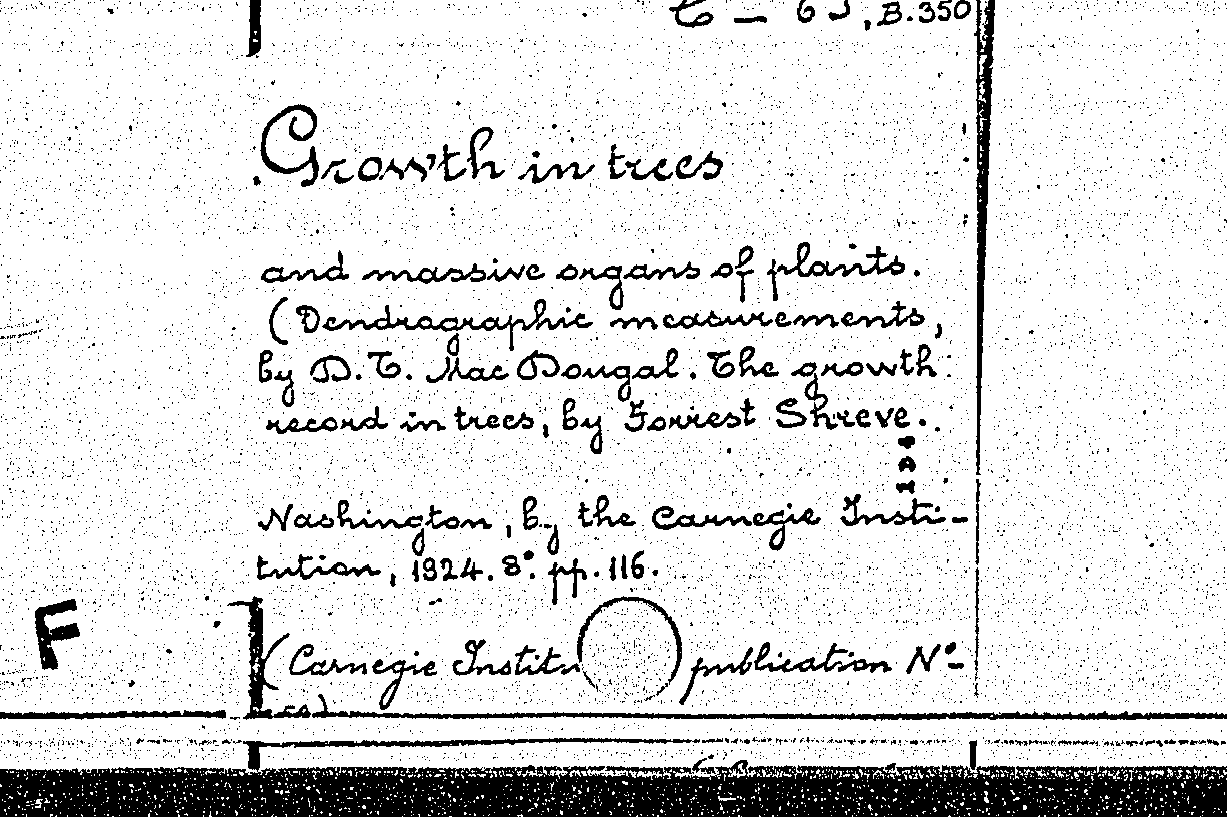 B.350
Growth in trees
and massive organs of plants.
(Dendrographic measurements,
by D.T. Mac Dougal. The growth
record in trees, by Forrest Shreve.
Washington, by the Carnegie Insti-
tution, 1924. 8°. pp. 116.
F
(Carnegie Institu publication N°-